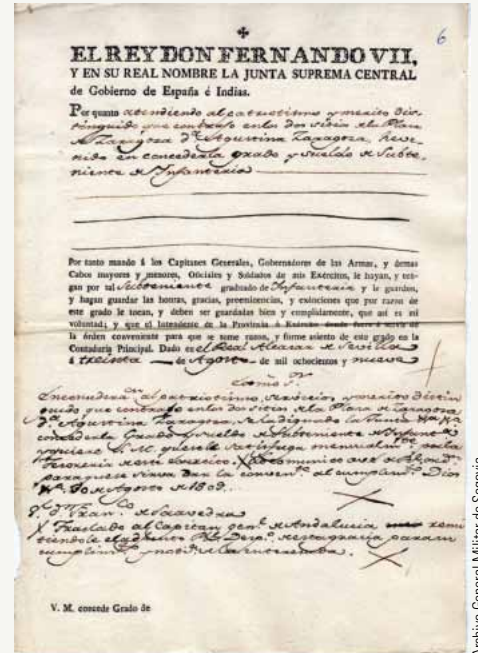 6
EL REY DON FERNANDO VII,
Y EN SU REAL NOMBRE LA JUNTA SUPREMA CENTRAL
de Gobierno de España é Indias.
Por quanto atendiendo al patriotismo y merito dis-
tinguido que contrajo en los dos sitios de la Plaza
de Zaragoza Dª Agustina Zaragoza, he ve-
nido en concederla grado y sueldo de Subte-
niente de Infanteria
Por tanto mando á los Capitanes Generales, Gobernadores de las Armas, y demas
Cabos mayores y menores, Oficiales y Soldados de mis Exércitos, le hayan, y ten-
gan por tal Subteniente graduado de Infanteria y le guarden,
y hagan guardar las honras, gracias, preeminencias, y exênciones que por razon de
este grado le tocan, y deben ser guardadas bien y cumplidamente, que así es mi
voluntad; y que el Intendente de la Provincia ó Exército donde fuere á servir dé
la órden conveniente para que se tome razon, y forme asiento de este grado en la
Contaduría Principal. Dado en el Real Alcazar de Sevilla
á treinta de Agosto de mil ochocientos y nueve
al patriotismo, servicios, y merito distin
guido que contrajo en los dos sitios de la Plaza de Zaragoza
Dª Agustina Zaragoza, se ha dignado la Junta
concederla Grado y sueldo de Subteniente de
y quiere S.M. que se le satisfaga mensualmte por la
Tesoreria de este Exercito. comunico a V. de Rl. ordn.
para que se sirva dar la convente. al cumplimto. Dios
30 de Agosto de 1809.
Sr. Dn. Franco. de Saavedra
Traslado al Capitan genl. de Andalucia remi
tiendole el adjunto Rl. Despo. de esta gracia para su
cumplimto. y notia. de la interesada.
V. M. concede Grado de
Archivo General Militar de Segovia